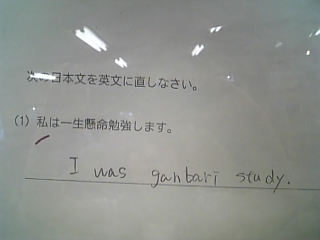 次の日本文を英文に直しなさい。
(1) 私は一生懸命勉強します。
I was ganbari study.